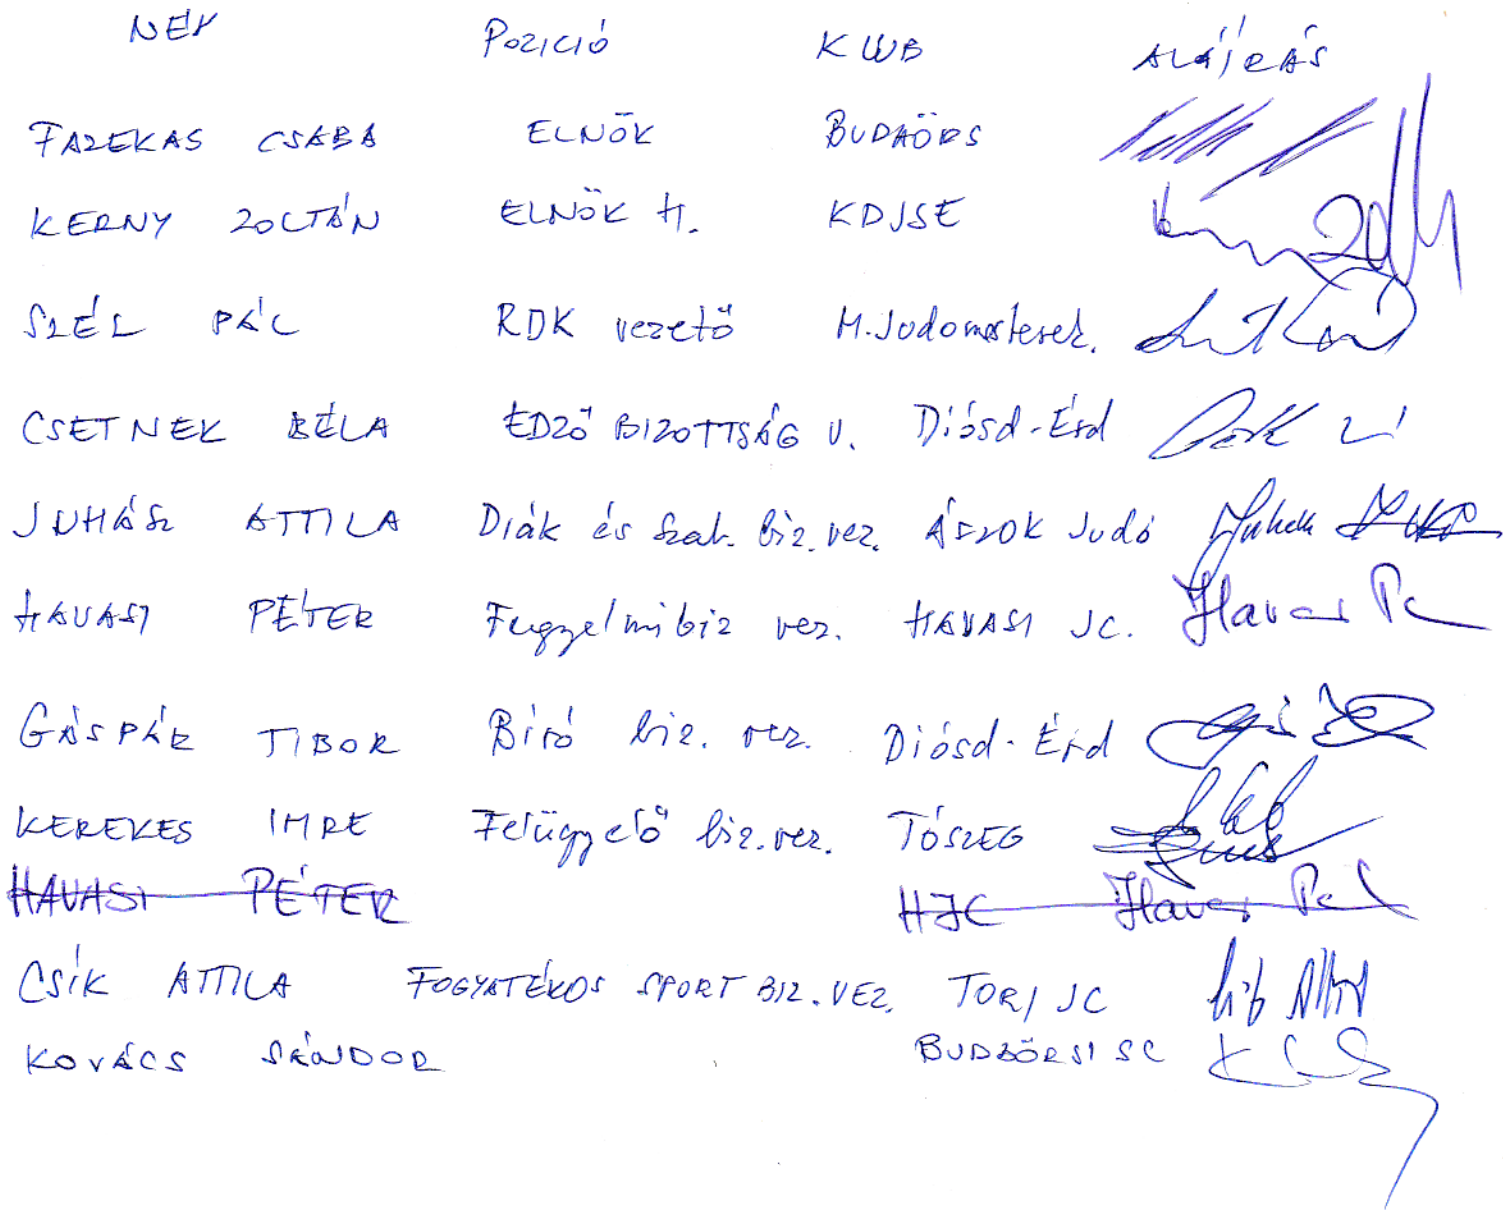 NÉV POZICIÓ KLUB ALÁÍRÁS
FAZEKAS CSABA ELNÖK BUDAÖRS
KERNY ZOLTÁN ELNÖK H. KDJSE
SZÉL PÁL RDK vezető M. Judomesterek.
CSETNEK BÉLA EDZŐ BIZOTTSÁG V. Diósd-Érd
JUHÁSZ ATTILA Diák és Szab. biz. vez. ÁSZOK Judó
HAVASI PÉTER Fegyelmi biz vez. HAVASI JC.
GÁSPÁR TIBOR Bíró biz. vez. Diósd-Érd
KEREKES IMRE Felügyelő biz. vez. TÓSZEG
HAVASI PÉTER HJC
CSÍK ATTILA FOGYATÉKOS SPORT BIZ. VEZ. TORI JC
KOVÁCS SÁNDOR BUDAÖRSI SC